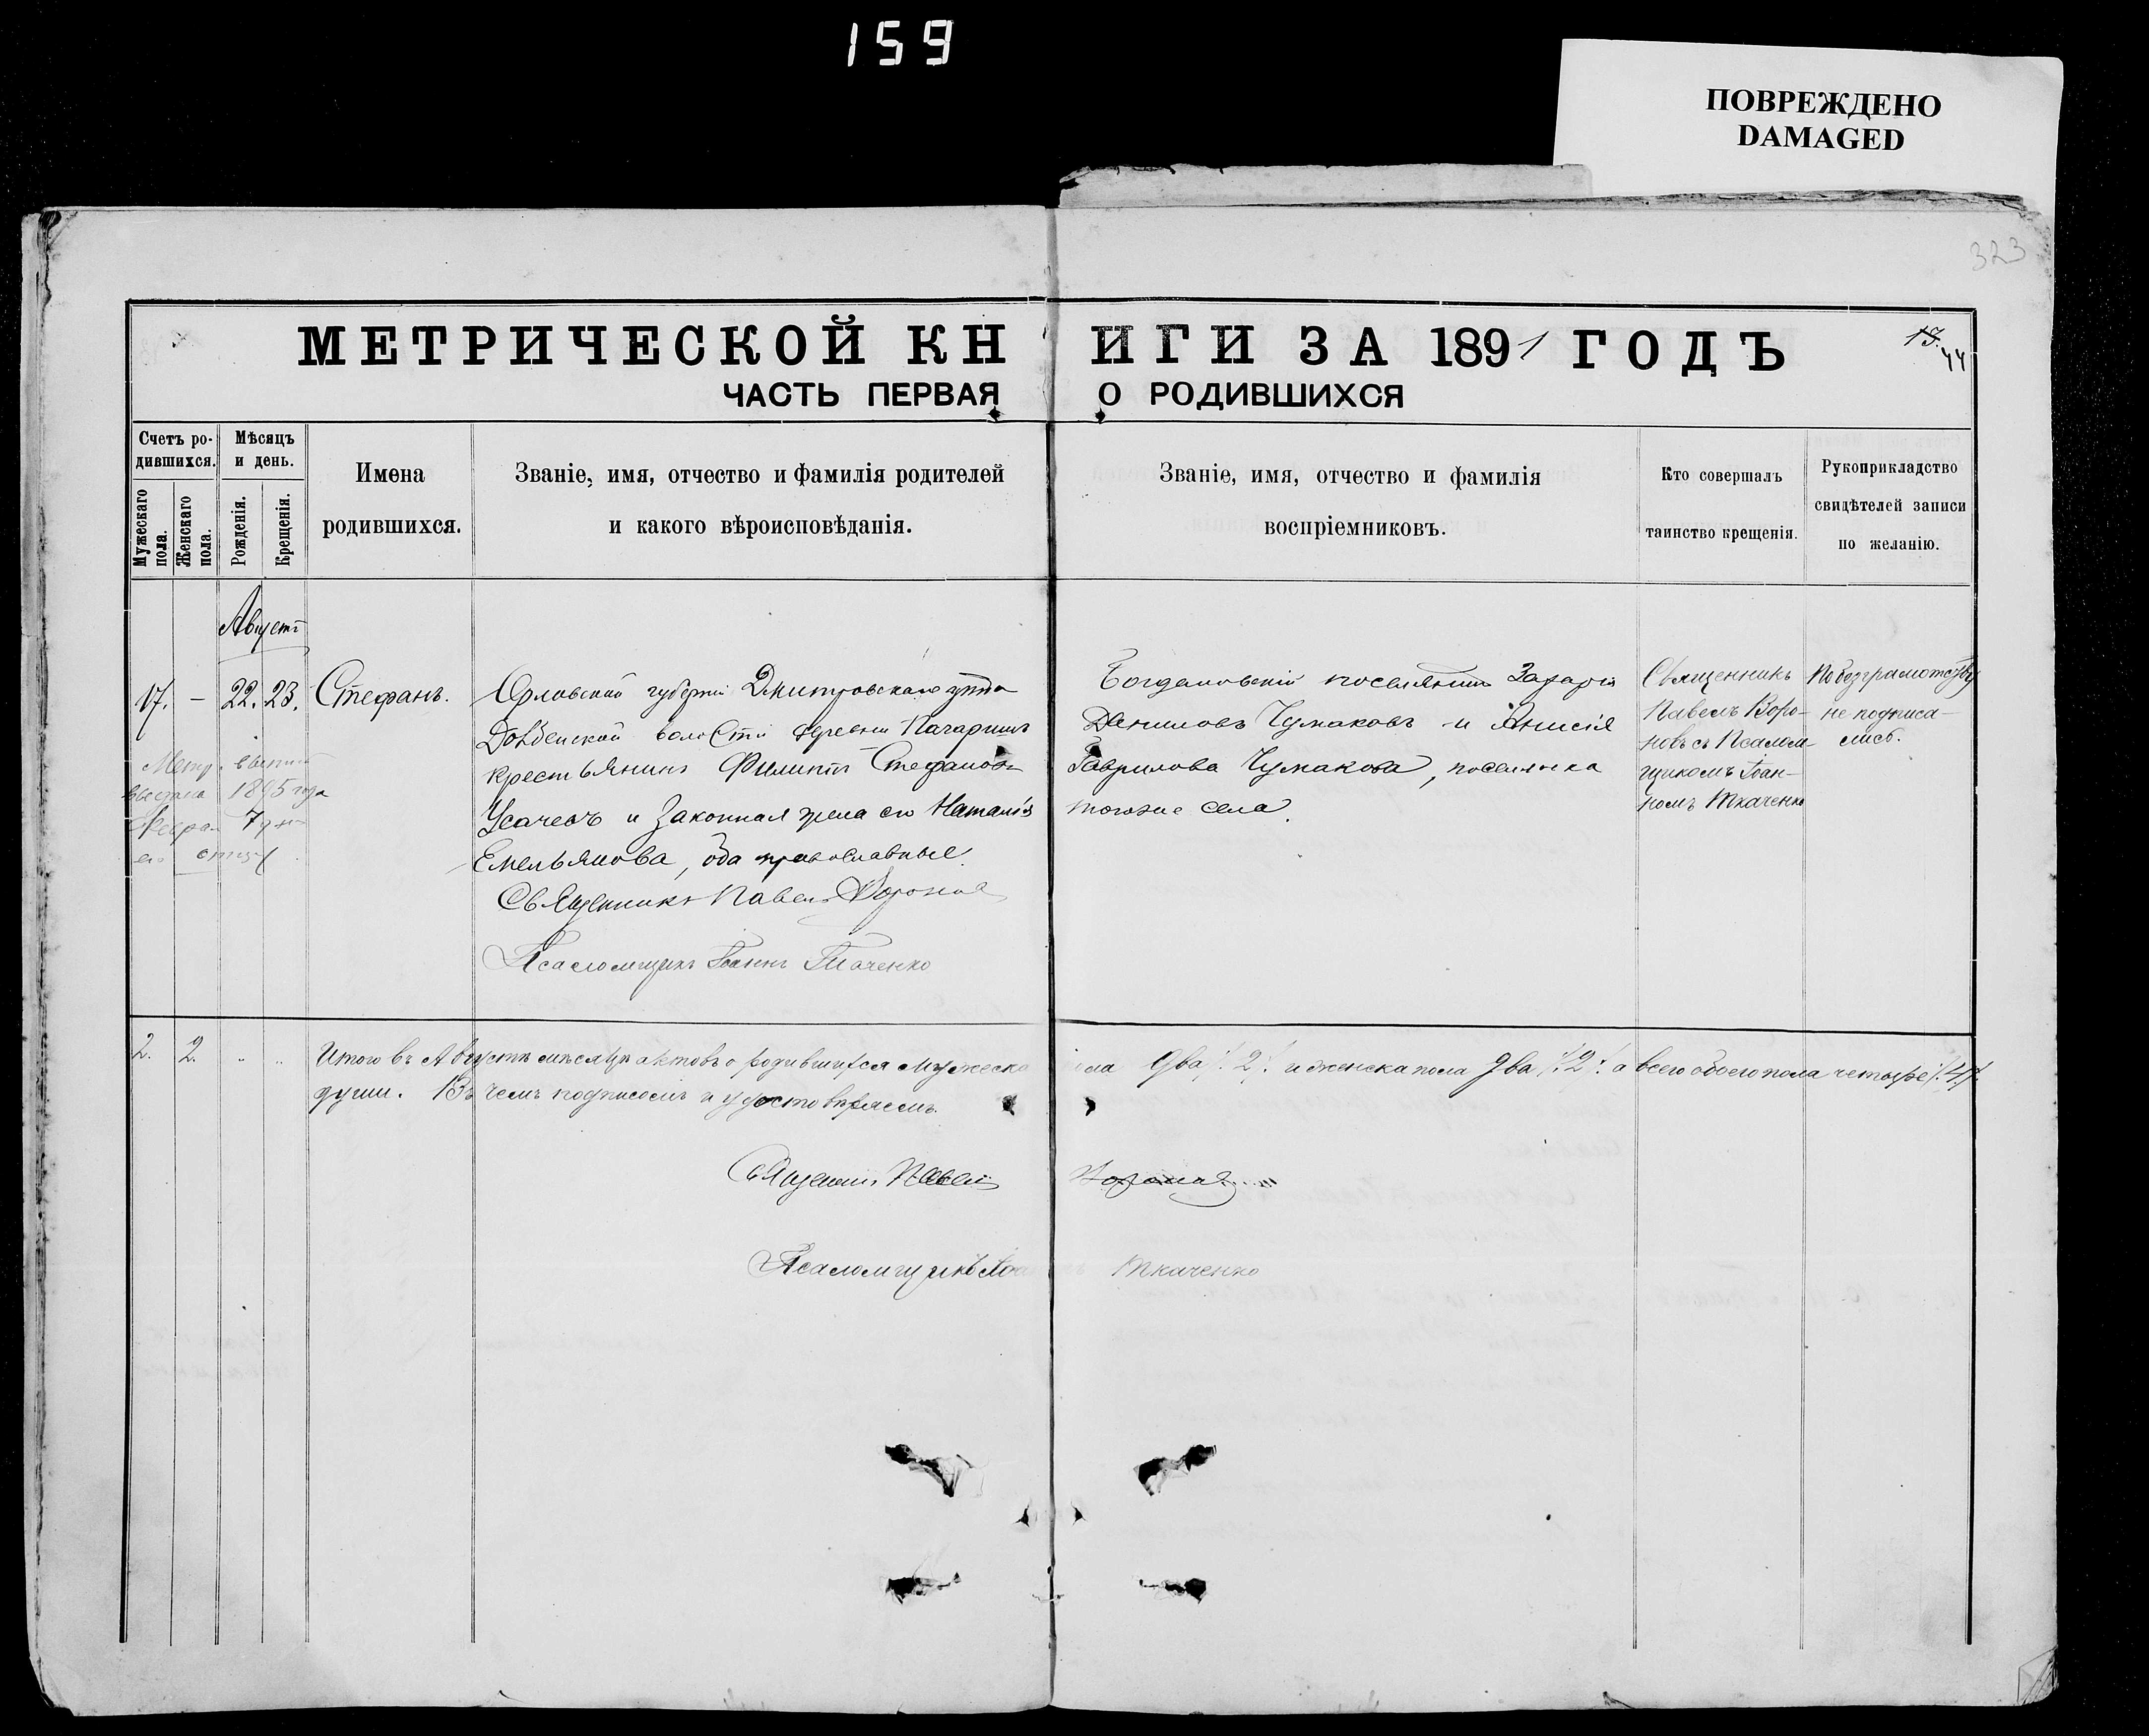 159
ПОВРЕЖДЕНО
DAMAGED
323
МЕТРИЧЕСКОЙ КНИГИ ЗА 1891 ГОДЪ
17.
44
ЧАСТЬ ПЕРВАЯ О РОДИВШИХСЯ
Счетъ родившихся.
Мужескаго пола.
Женскаго пола.
Мѣсяцъ и день.
Рожденія.
Крещенія.
Имена родившихся.
Званіе, имя, отчество и фамилія родителей
и какого вѣроисповѣданія.
Званіе, имя, отчество и фамилія
воспріемниковъ.
Кто совершалъ
таинство крещенія.
Рукоприкладство
свидѣтелей записи
по желанію.
Августъ
17. – 22. 23. Стефанъ.
Орловской губерніи Дмитровскаго уѣзда
волости деревни
крестьянинъ Филиппъ Стефановъ
Усачевъ и законная жена его Наталія
Емельянова, оба православные.
Священникъ Павелъ Вороновъ
Псаломщикъ Іоаннъ Ткаченко
Метр.
1895 года
7 дня
Богдановскій поселянинъ Захарія
Даниловъ Чумаковъ и Анисія
Гаврилова Чумакова, поселянка
тогоже села.
Священникъ
Павелъ Воро-
новъ съ Псалом-
щикомъ Іоан-
номъ Ткаченко
По безграмотству
не подписа-
лись.
2. 2. " "
Итого въ Августѣ мѣсяцѣ актовъ о родившихся мужеска пола два /.2./ и женска пола два /.2./ а всего обоего пола четыре /.4./
души. Въ чемъ подписомъ и удостовѣряемъ.
Священникъ Павелъ Вороновъ
Псаломщикъ Іоаннъ Ткаченко